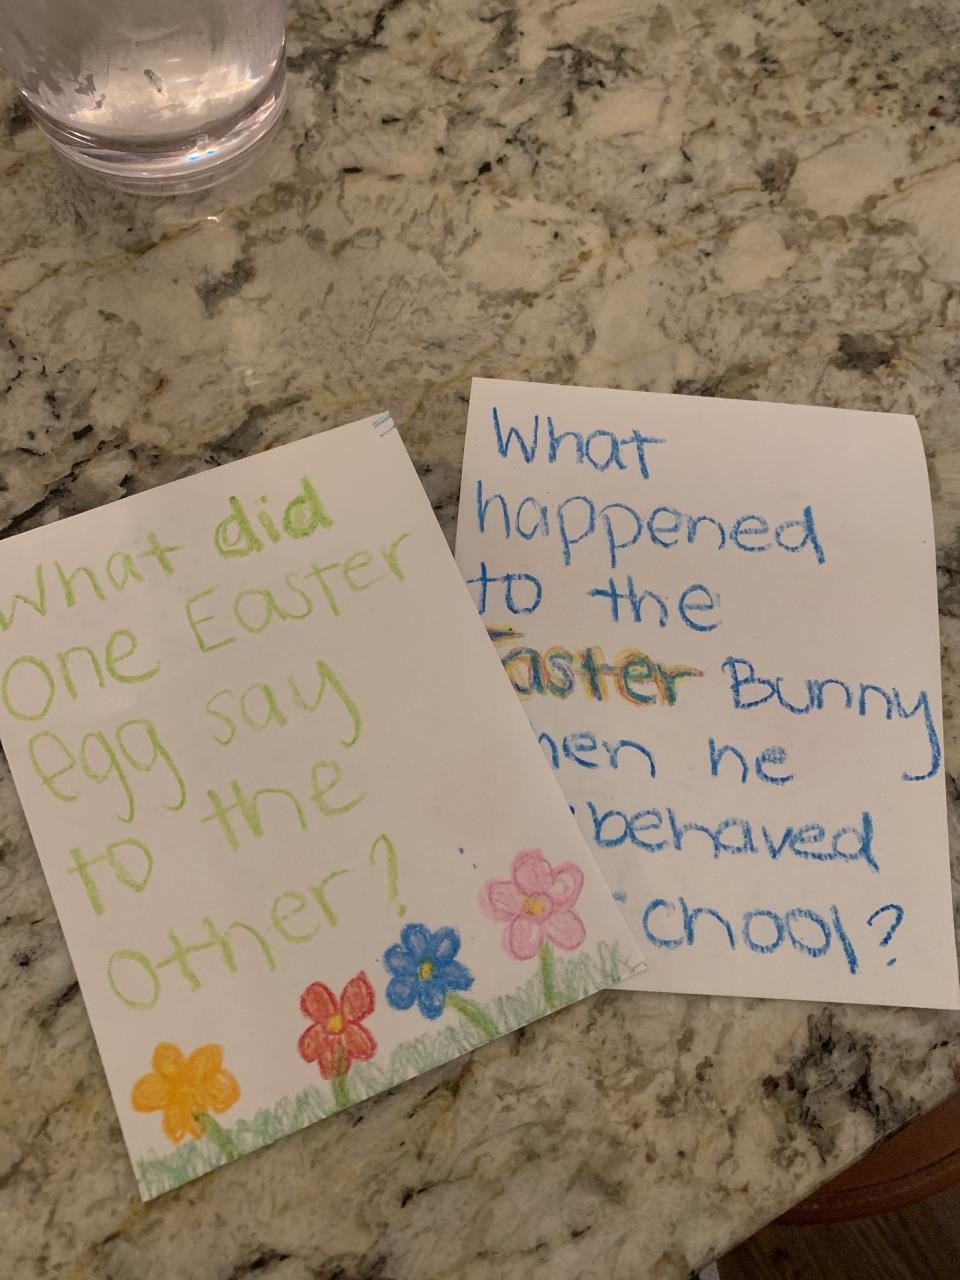 What did
one Easter
egg say
to the
other?
What
happened
to the
Easter Bunny
hen he
behaved
chool?